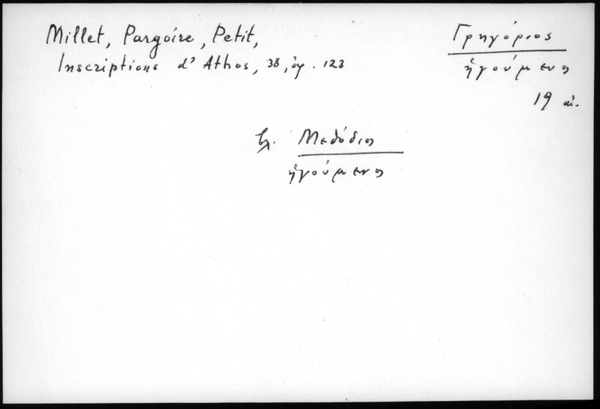 Millet, Pargoire, Petit,
Inscriptions d' Athos, 38, ἀρ. 123
Γρηγόριος
ἡγούμενος
19 αἰ.
βλ. Μεθόδιος
ἡγούμενος